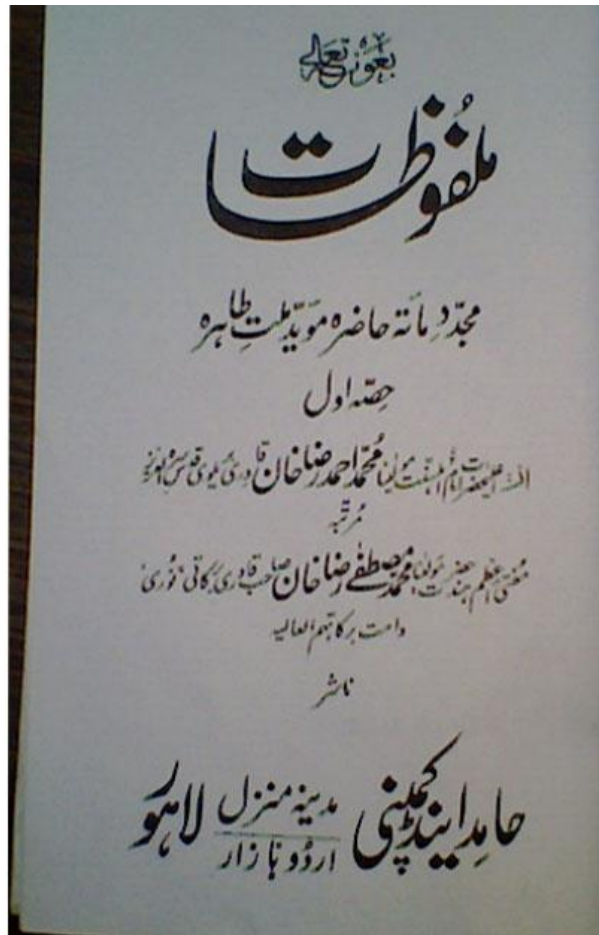 بعونہ تعالیٰ
ملفوظات
مجدّد مائۃ حاضرہ مویّد ملتِ طاہرہ
حصّہ اول
اعلیحضرت امام اہلسنت محمّد احمد رضا خان قادری بریلوی قدس سرہ
مُرتبہ
مفتی اعظم ہند حضرت مولانا محمد مصطفےٰ رضا خان صاحب قادری برکاتی نوری
دامت برکاتہم العالیہ
ناشر
حامد اینڈ کمپنی مدینہ منزل اردو بازار لاہور